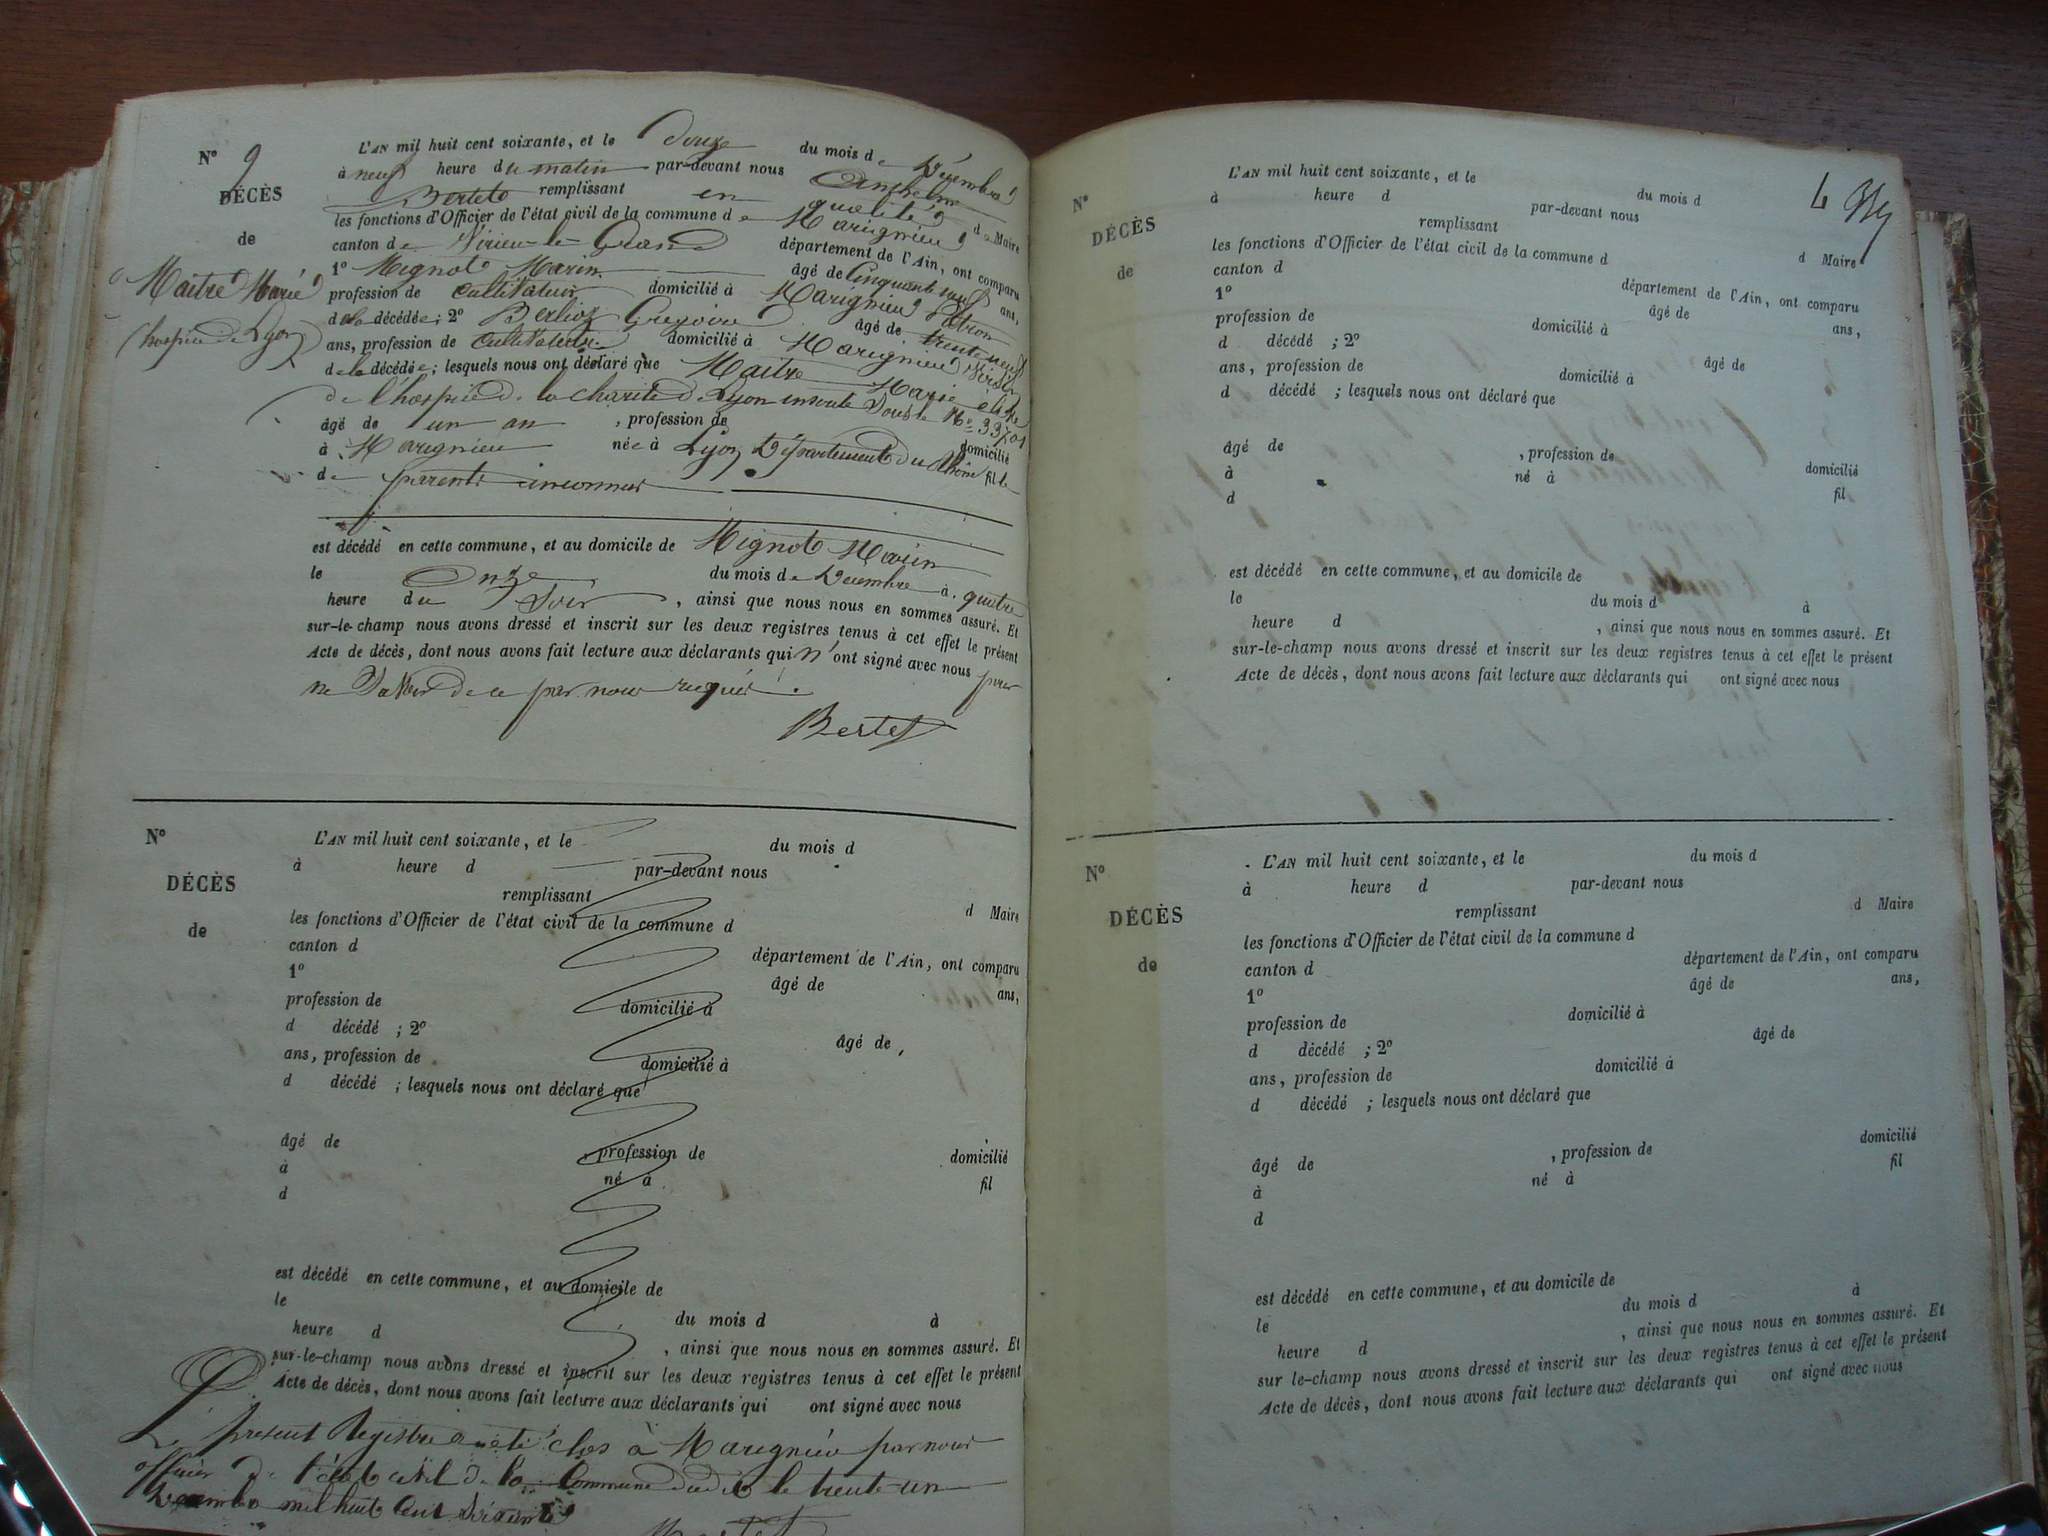 N° 9
DÉCÈS
de
Maitre Marie
hospice de Lyon
L'AN mil huit cent soixante, et le douze du mois de Décembre
à neuf heure du matin par-devant nous Anthelme
Bertet remplissant en qualité de Maire
les fonctions d'Officier de l'état civil de la commune de Marignieu
canton de Virieu-le-Grand département de l'Ain, ont comparu
1° Mignot Marin âgé de Cinquante ans,
profession de cultivateur domicilié à Marignieu Patron
de la décédée; 2° Berlioz Gregoire âgé de trente neuf
ans, profession de cultivateur domicilié à Marignieu Voisin
de la décédée; lesquels nous ont déclaré que Maitre Marie élève
de l'hospice de la charité de Lyon inscrite sous le N° 33701
âgé de un an, profession de domicilié
à Marignieu née à Lyon Département du Rhône fille
de parents inconnus
est décédé en cette commune, et au domicile de Mignot Marin
le Onze du mois de Décembre à quatre
heure du Soir, ainsi que nous nous en sommes assuré. Et
sur-le-champ nous avons dressé et inscrit sur les deux registres tenus à cet effet le présent
Acte de décès, dont nous avons fait lecture aux déclarants qui n'ont signé avec nous pour
ne Savoir de ce par nous requis.
Bertet
N°
DÉCÈS
de
L'AN mil huit cent soixante, et le du mois d
à heure d par-devant nous
remplissant d Maire
les fonctions d'Officier de l'état civil de la commune d
canton d département de l'Ain, ont comparu
1° âgé de ans,
profession de domicilié à
d décédé ; 2° âgé de
ans, profession de domicilié à
d décédé ; lesquels nous ont déclaré que
âgé de , profession de domicilié
à né à fil
d
est décédé en cette commune, et au domicile de
le du mois d à
heure d , ainsi que nous nous en sommes assuré. Et
sur-le-champ nous avons dressé et inscrit sur les deux registres tenus à cet effet le présent
Acte de décès, dont nous avons fait lecture aux déclarants qui ont signé avec nous
Le présent Registre a été clos à Marignieu par nous
officier de l'état civil de la Commune dudit le trente-un
Décembre mil huit Cent Soixante
Bertet
N°
DÉCÈS
de
L'AN mil huit cent soixante, et le du mois d
à heure d par-devant nous
remplissant d Maire
les fonctions d'Officier de l'état civil de la commune d
canton d département de l'Ain, ont comparu
1° âgé de ans,
profession de domicilié à
d décédé ; 2° âgé de
ans, profession de domicilié à
d décédé ; lesquels nous ont déclaré que
âgé de , profession de domicilié
à né à fil
d
est décédé en cette commune, et au domicile de
le du mois d à
heure d , ainsi que nous nous en sommes assuré. Et
sur-le-champ nous avons dressé et inscrit sur les deux registres tenus à cet effet le présent
Acte de décès, dont nous avons fait lecture aux déclarants qui ont signé avec nous
N°
DÉCÈS
de
L'AN mil huit cent soixante, et le du mois d
à heure d par-devant nous
remplissant d Maire
les fonctions d'Officier de l'état civil de la commune d
canton d département de l'Ain, ont comparu
1° âgé de ans,
profession de domicilié à
d décédé ; 2° âgé de
ans, profession de domicilié à
d décédé ; lesquels nous ont déclaré que
âgé de , profession de domicilié
à né à fil
d
est décédé en cette commune, et au domicile de
le du mois d à
heure d , ainsi que nous nous en sommes assuré. Et
sur le-champ nous avons dressé et inscrit sur les deux registres tenus à cet effet le présent
Acte de décès, dont nous avons fait lecture aux déclarants qui ont signé avec nous